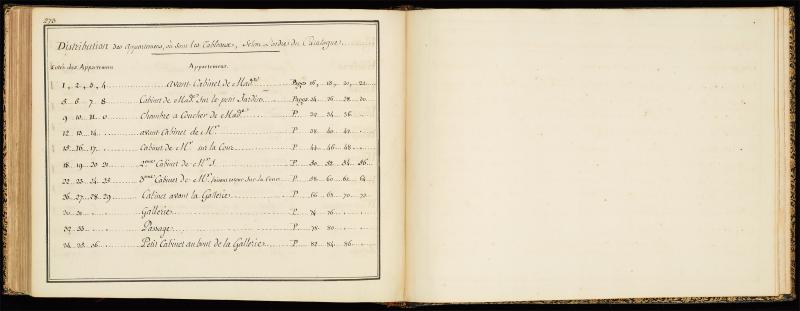 273
Distribution des Appartemens, où sont les Tableaux, Selon L'ordre du Catalogue.
Cotés des Appartemens Appartemens.
1, 2, 3, 4 avant Cabinet de Mad.e Pages 16, 18, 20, 22
5 6 7 8 Cabinet de Mad.e sur le petit Jardin Pages 24 26 28 30
9 10 11 0 Chambre a Coucher de Mad.e P. 32 34 36
12 13 14 avant Cabinet de M.r P. 38 40 42
15 16 17 Cabinet de M.r sur la Cour P. 44 46 48
18 19 20 21 2.eme Cabinet de M.r P. 50 52 54 56
22 23 24 25 3.eme Cabinet de M.r sur la Cour P. 58 60 62 64
26 27 28 29 Cabinet avant la Gallerie P. 66 68 70 72
30 31 Gallerie P. 74 76
32 33 Passage P. 78 80
34 35 36 Petit Cabinet au bout de la Gallerie P. 82 84 86